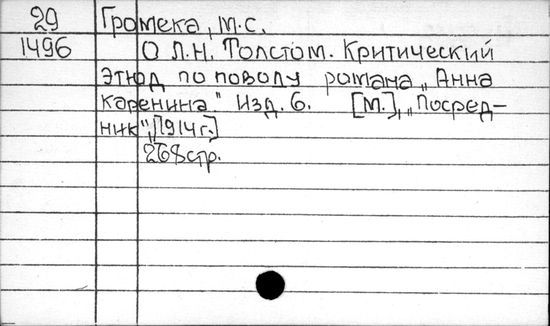 29 Громека, М.С.
1496 О Л.Н. Толстом. Критический
этюд по поводу романа „Анна
Каренина." Изд. 6. [М.], „Посред-
ник", [1914г.]
268стр.